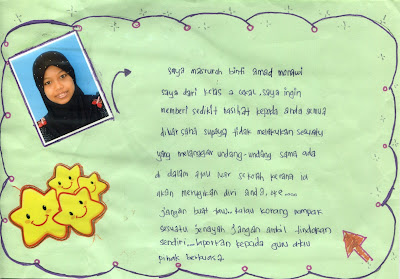 saya masturoh binti amad
saya dari kelas 2 cekal. saya ingin
memberi sedikit nasihat kepada anda semua
di luar sana supaya tidak melakukan sesuatu
yang melanggar undang-undang sama ada
di dalam atau luar sekolah kerana ia
akan merugikan diri anda.
jangan buat tau... kalau korang nampak
sesuatu jenayah jangan ambil tindakan
sendiri... laporkan kepada guru atau
pihak berkuasa.